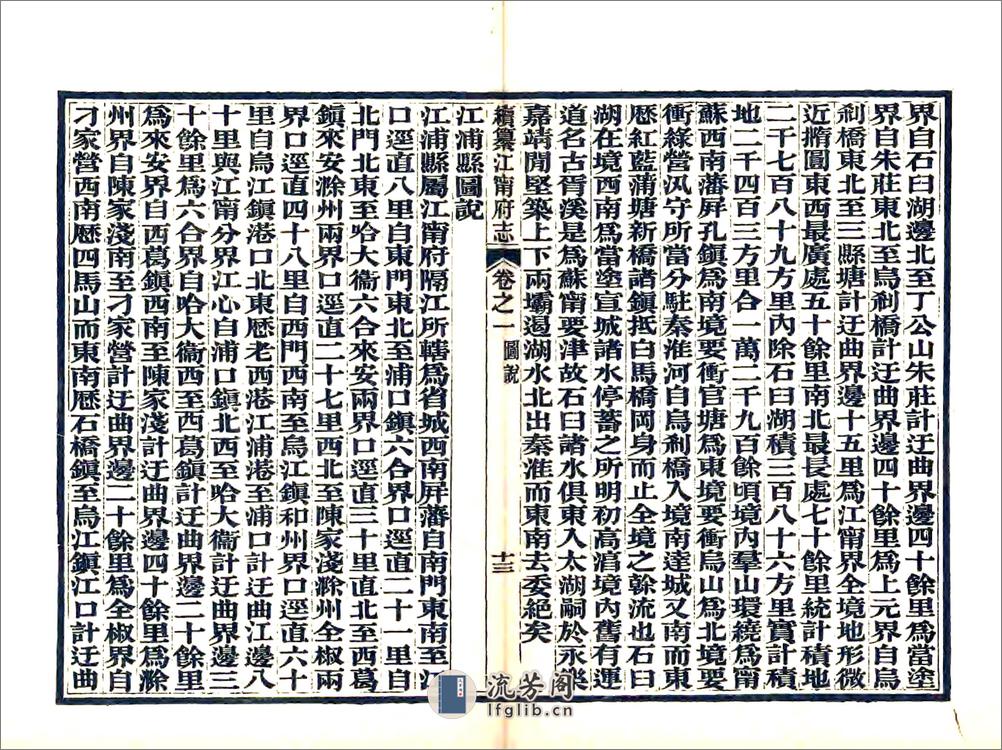 界自石臼湖邊北至丁公山朱莊計迂曲界邊四十餘里爲當塗
界自朱莊東北至烏剎橋計迂曲界邊四十餘里爲上元界自烏
剎橋東北至三縣塘計迂曲界邊十五里爲江甯界全境地形微
近橢圓東西最廣處五十餘里南北最長處七十餘里統計積地
二千七百八十九方里內除石臼湖積三百八十六方里實計積
地二千四百三方里合一萬二千九百餘頃境內羣山環繞爲甯
蘇西南藩屏孔鎮爲南境要衝官塘爲東境要衝烏山爲北境要
衝綠營汛守所當分駐秦淮河自烏剎橋入境南達城又南而東
歷紅藍蒲塘新橋諸鎮抵白馬橋岡身而止全境之榦流也石臼
湖在境西南爲當塗宣城諸水停蓄之所明初高淯境內舊有運
道名古胥溪是爲蘇甯要津故石臼諸水俱東入太湖嗣於永樂
嘉靖閒堅築上下兩壩遏湖水北出秦淮而東南去委絕矣
續纂江甯府志
卷之一
圖說
十三
江浦縣圖說
江浦縣屬江甯府隔江所轄爲省城西南屏藩自南門東南至江
口逕直八里自東門東北至浦口鎮六合界口逕直二十一里自
北門北東至哈大衞六合來安兩界口逕直三十里直北至西葛
鎮來安滁州兩界口逕直二十七里西北至陳家淺滁州全椒兩
界口逕直四十八里自西門西南至烏江鎮和州界口逕直六十
里自烏江鎮港口北東歷老西港江浦港至浦口計迂曲江邊八
十里與江甯分界江心自浦口鎮北西至哈大衞計迂曲界邊三
十餘里爲六合界自哈大衞西至西葛鎮計迂曲界邊二十餘里
爲來安界自西葛鎮西南至陳家淺計迂曲界邊四十餘里爲滁
州界自陳家淺南至刁家營計迂曲界邊二十餘里爲全椒界自
刁家營西南歷四馬山而東南歷石橋鎮至烏江鎮江口計迂曲
流芳阁
lfglib.cn